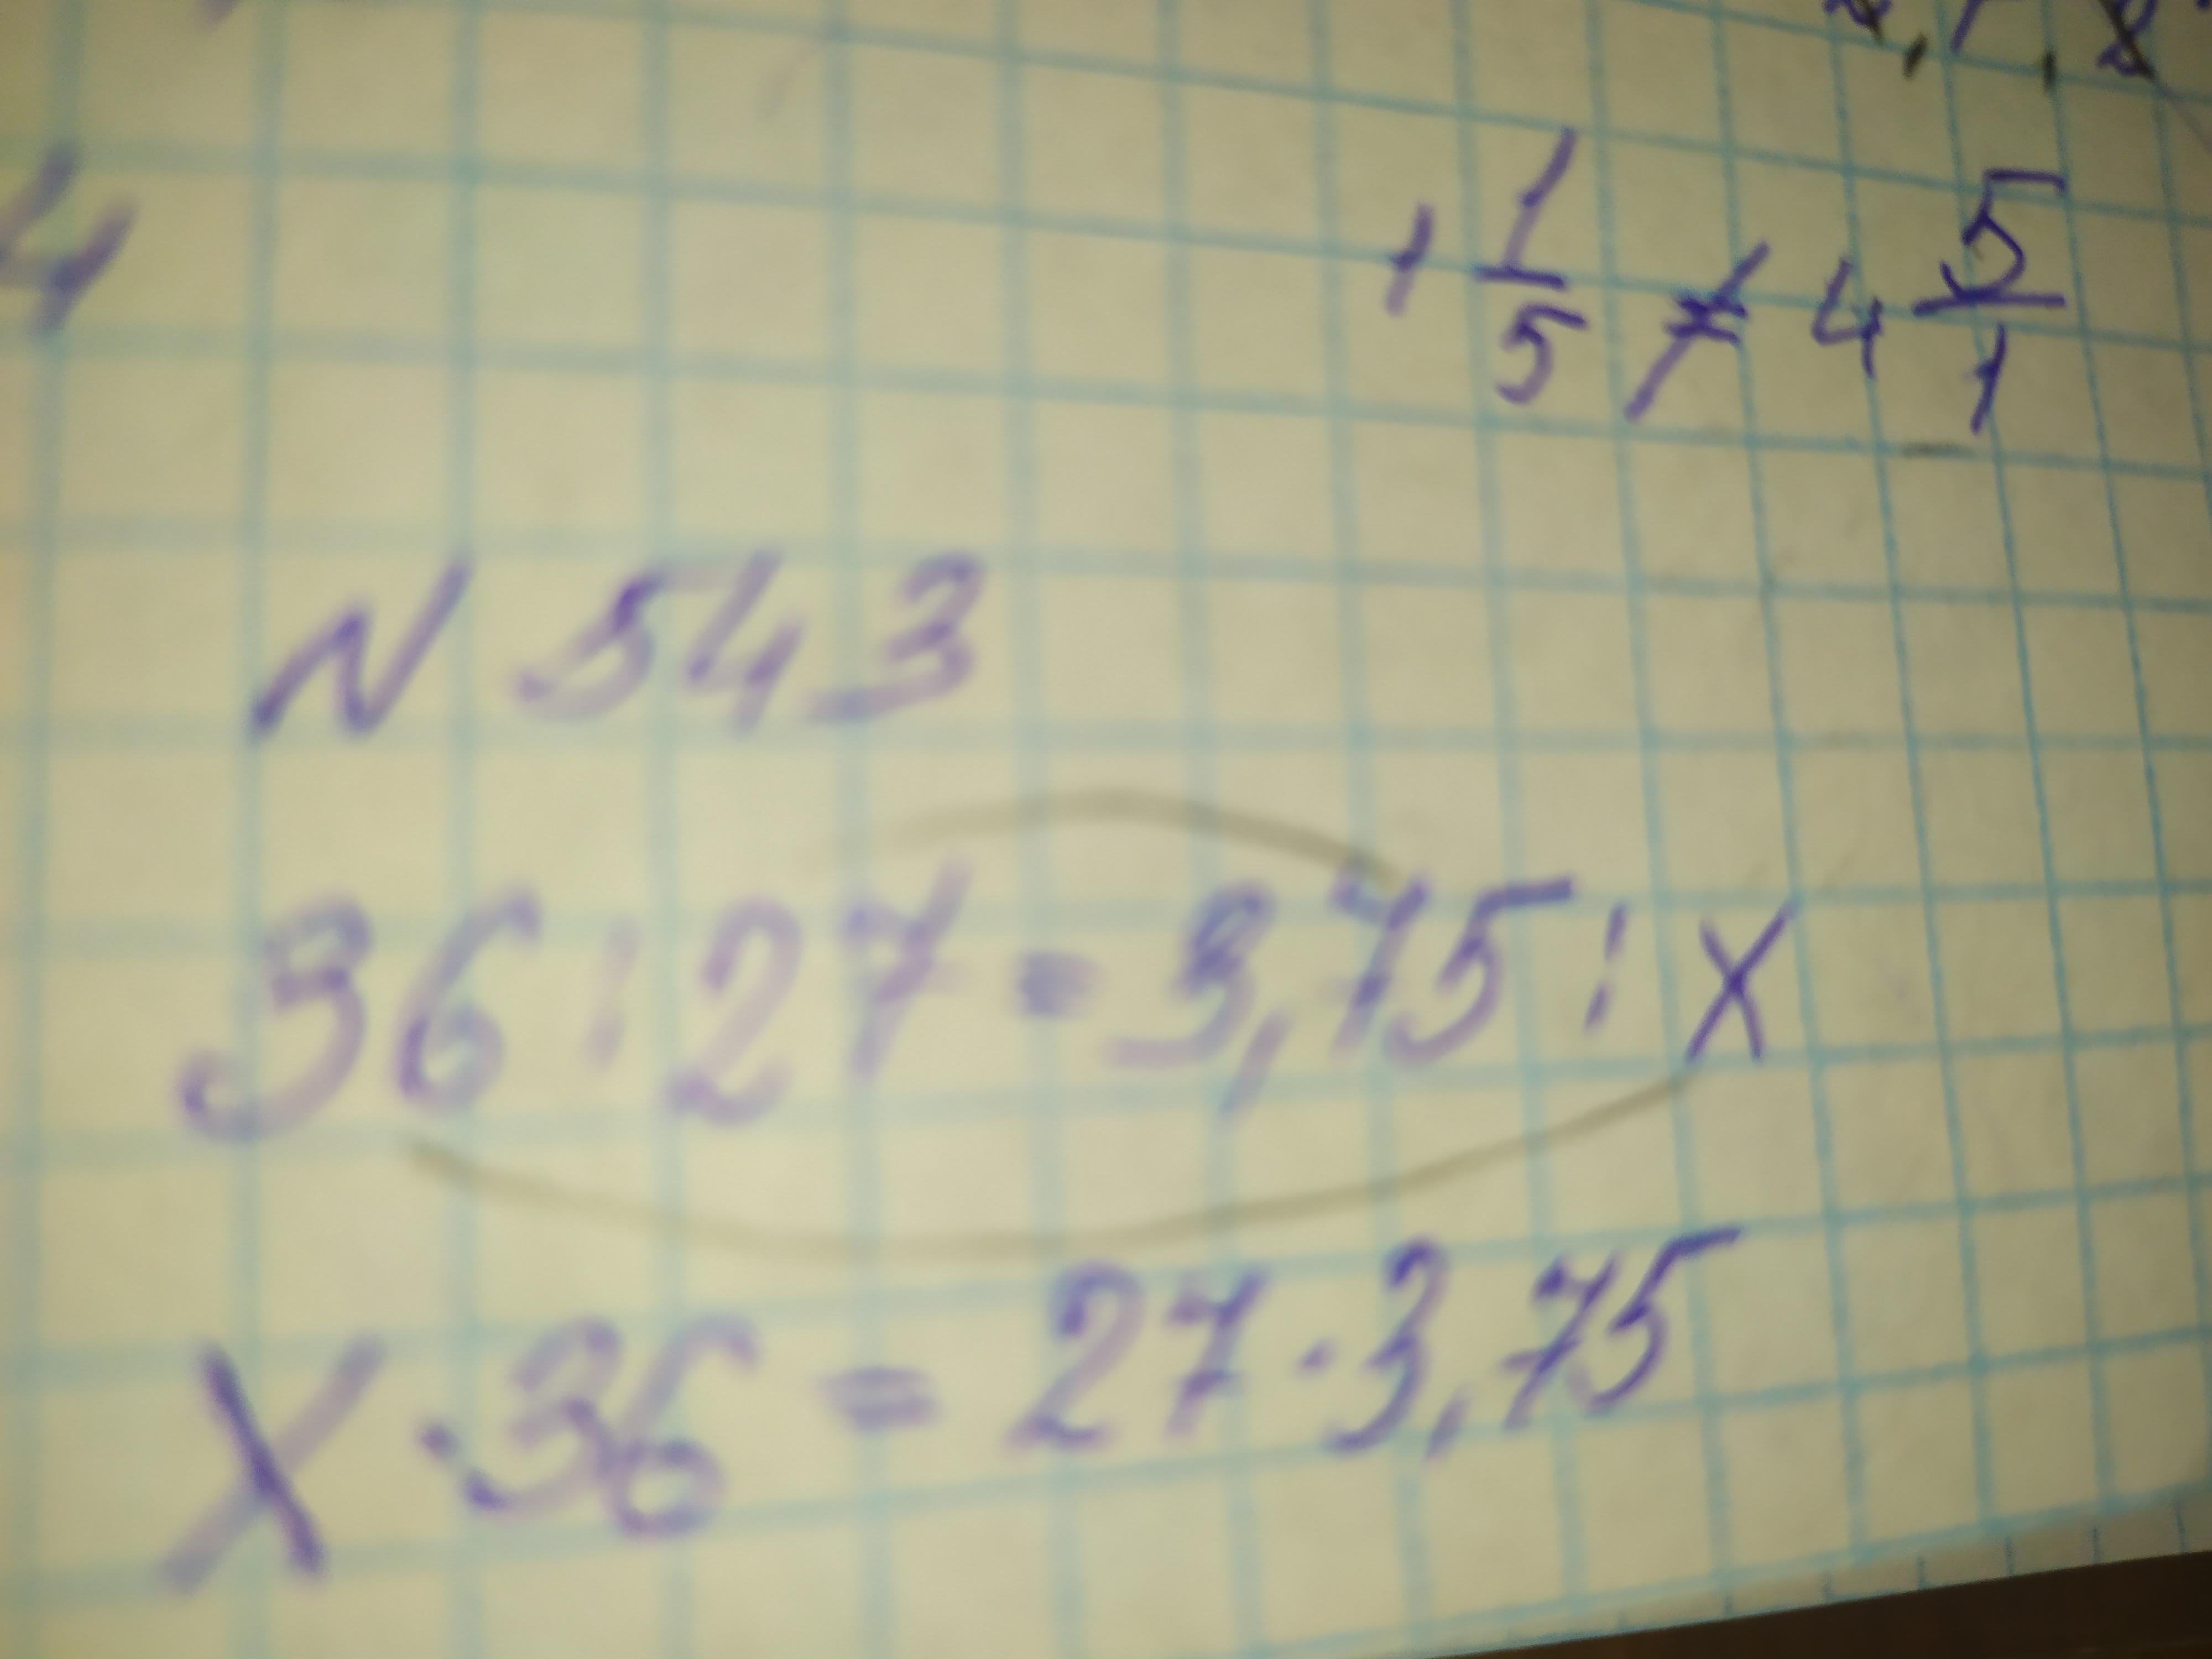 4
1 1/5 ≠ 4 5/1
N 543
36 : 27 = 3,75 : x
x · 36 = 27 · 3,75